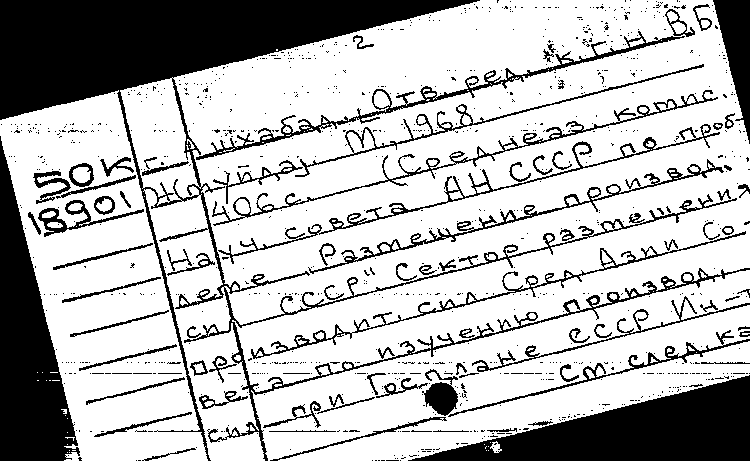 2
г. Ашхабад. Отв. ред. к.г.н. В.Б.
50К
18901
Жмуйда]. М., 1968.
406с. (Среднеаз. комис.
Науч. совета АН СССР по проб-
леме "Размещение производ.
сил СССР". Сектор размещения
производит. сил Сред. Азии Со-
вета по изучению производ.
сил при Госплане СССР. Ин-т
См. след. ка